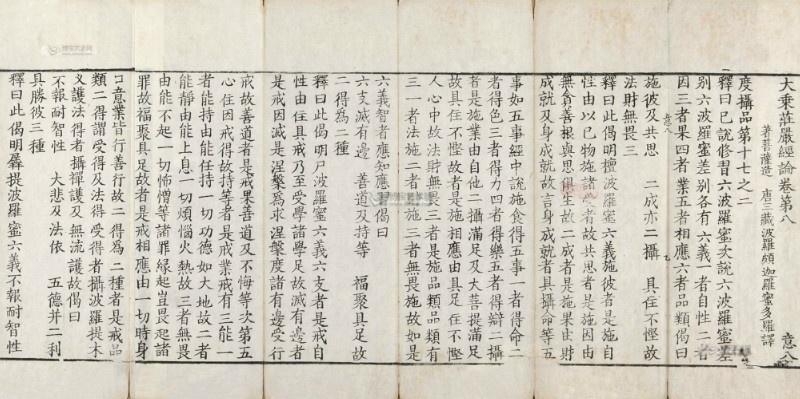 大乘莊嚴經論卷第八 意八
著菩薩造 唐三藏波羅頗迦羅蜜多羅譯
度攝品第十七之二
釋曰已說修習六波羅蜜次說六波羅蜜差
別六波羅蜜差別各有六義一者自性二者
因三者果四者業五者相應六者品類偈曰
施彼及共思 二成亦二攝 具住不慳故
法財無畏三
釋曰此偈明檀波羅蜜六義施彼者是施自
性由以已物施諸受者故共思者是施因由
無貪善根與思俱生故二成者是施果由財
成就及身成就故言身成就者具攝命等五
事如五事經中說施食得五事一者得命二
者得色三者得力四者得樂五者得辯二攝
者是施業由自他二攝滿足及大菩提滿足
故具住不慳故者是施相應由具足住不慳
人心中故法財無畏三者是施品類品類有
三一者法施二者財施三者無畏施故如是
六義智者應知應偈曰
六支滅有邊 善道及持等 福聚具足故
二得為二種
釋曰此偈明尸波羅蜜六義六支者是戒自
性由住具戒乃至受學諸學足故滅有邊者
是戒因滅是涅槃為求涅槃度諸有邊受行
戒故善道者是戒果善道及不悔等次第五
心住因戒得故持等者是戒業戒有三能一
者能持由能任持一切功德如大地故二者
能靜由能上息一切煩惱火熱故三者無畏
由能不起一切怖憎等諸罪緣起豈畏起諸
罪故福聚具足故者是戒相應由一切時身
口意業皆行善行故二得為二種者是戒品
類二得謂受得及法得受得者攝波羅提木
叉護法得者攝禪護及無流護故偈曰
不報耐智性 大悲及法依 五德并二利
具勝彼三種
釋曰此偈明羼提波羅蜜六義不報耐智性